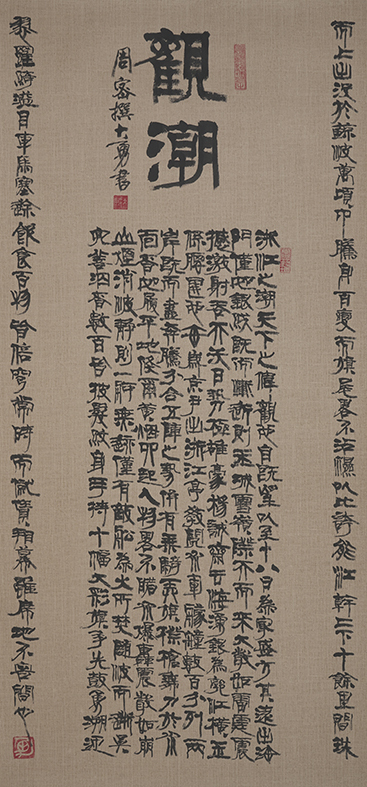 觀潮
周密撰大勇書
浙江之潮天下之偉觀也自既望以至十八日為最盛方其遠出海
門僅如銀線既而漸近則玉城雪嶺際天而來大聲如雷霆震
撼激射吞天沃日勢極雄豪楊誠齋云海湧銀為郭江橫玉
係腰是也每歲京尹出浙江亭教閱水軍艨艟數百分列兩
岸既而盡奔騰分合五陣之勢併有乘騎弄旗標槍舞刀於水
面者如履平地倏爾黃煙四起人物畧不睹水爆轟震聲如崩
山煙消波靜則一舸無跡僅有敵船為火所焚隨波而逝吳
兒善泅者數百皆披髮紋身手持十幅大彩旗爭先鼓勇溯迎
而上出沒於鯨波萬頃中騰身百變而旗尾畧不沾濕以此誇能江幹上下十餘里間珠
翠羅綺溢目車馬塞途飲食百物皆倍穹常時而僦賃看幕雖席地不容間也